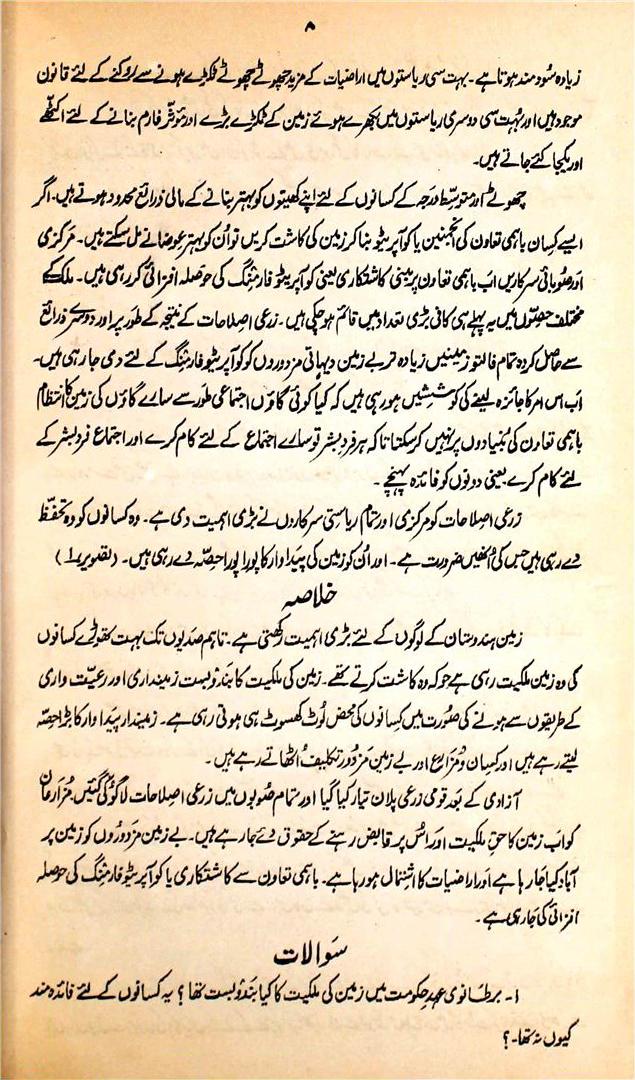 ۸
زیادہ سُود مند ہوتا ہے۔ بہت سی ریاستوں میں اراضیات کے مزید چھوٹے چھوٹے ٹکڑے ہونے سے روکنے کے لئے قانون
موجود ہیں اور بہت سی دوسری ریاستوں میں بکھرے ہوئے زمین کے ٹکڑے بڑے اور مؤثر فارم بنانے کے لئے اکٹھے
اور یکجا کئے جاتے ہیں۔
چھوٹے اور متوسّط درجہ کے کسانوں کے لئے اپنے کھیتوں کو بہتر بنانے کے مالی ذرائع محدود ہوتے ہیں۔ اگر
ایسے کسان باہمی تعاون کی انجمنیں یا کوآپریٹو بنا کر زمین کی کاشت کریں تو اُن کو بہتر عوضانے مل سکتے ہیں۔ مرکزی
اور صوبائی سرکاریں اب باہمی تعاون پر مبنی کاشتکاری یعنی کوآپریٹو فارمنگ کی حوصلہ افزائی کر رہی ہیں۔ ملک کے
مختلف حصّوں میں یہ پہلے ہی کافی بڑی تعداد میں قائم ہو چکی ہیں۔ زرعی اصلاحات کے نتیجہ کے طور پر اور دوسرے ذرائع
سے حاصل کردہ تمام فالتو زمینیں زیادہ تر بے زمین دیہاتی مزدوروں کو کوآپریٹو فارمنگ کے لئے دی جا رہی ہیں۔
اب اس امر کا جائزہ لینے کی کوششیں ہو رہی ہیں کہ کیا کوئی گاؤں اجتماعی طور سے سارے گاؤں کی زمین کا انتظام
باہمی تعاون کی بُنیادوں پر نہیں کر سکتا تاکہ ہر فردِ بشر تو سارے اجتماع کے لئے کام کرے اور اجتماع فردِ بشر کے
لئے کام کرے یعنی دونوں کو فائدہ پہنچے۔
زرعی اصلاحات کو مرکزی اور تمام ریاستی سرکاروں نے بڑی اہمیت دی ہے۔ وہ کسانوں کو وہ تحفّظ
دے رہی ہیں جس کی اُنھیں ضرورت ہے۔ اور اُن کو زمین کی پیداوار کا پورا پورا حصّہ دے رہی ہیں۔ (تصویر ۱)
خلاصہ
زمین ہندوستان کے لوگوں کے لئے بڑی اہمیت رکھتی ہے۔ تاہم صدیوں تک بہت تھوڑے کسانوں
کی وہ زمین ملکیت رہی ہے جو کہ وہ کاشت کرتے تھے۔ زمین کی ملکیت کا بندوبست زمینداری اور رعیّت واری
کے طریقوں سے ہونے کی صُورت میں کسانوں کی محض لُوٹ کھسوٹ ہی ہوتی رہی ہے۔ زمیندار پیداوار کا بڑا حِصّہ
لیتے رہے ہیں اور کسان و مُزارع اور بے زمین مزدور تکلیف اُٹھاتے رہے ہیں۔
آزادی کے بعد قومی زرعی پلان تیار کیا گیا اور تمام صُوبوں میں زرعی اصلاحات لاگو کی گئیں۔ مُزارعان
کو اب زمین کا حق ملکیت اور اُس پر قابض رہنے کے حقوق دئے جا رہے ہیں۔ بے زمین مزدوروں کو زمین پر
آباد کیا جا رہا ہے اور اراضیات کا اشتمال ہو رہا ہے۔ باہمی تعاون سے کاشتکاری یا کوآپریٹو فارمنگ کی حوصلہ
افزائی کی جا رہی ہے۔
سوالات
۱۔ برطانوی عہدِ حکومت میں زمین کی ملکیت کا کیا بندوبست تھا؟ یہ کسانوں کے لئے فائدہ مند
کیوں نہ تھا۔؟